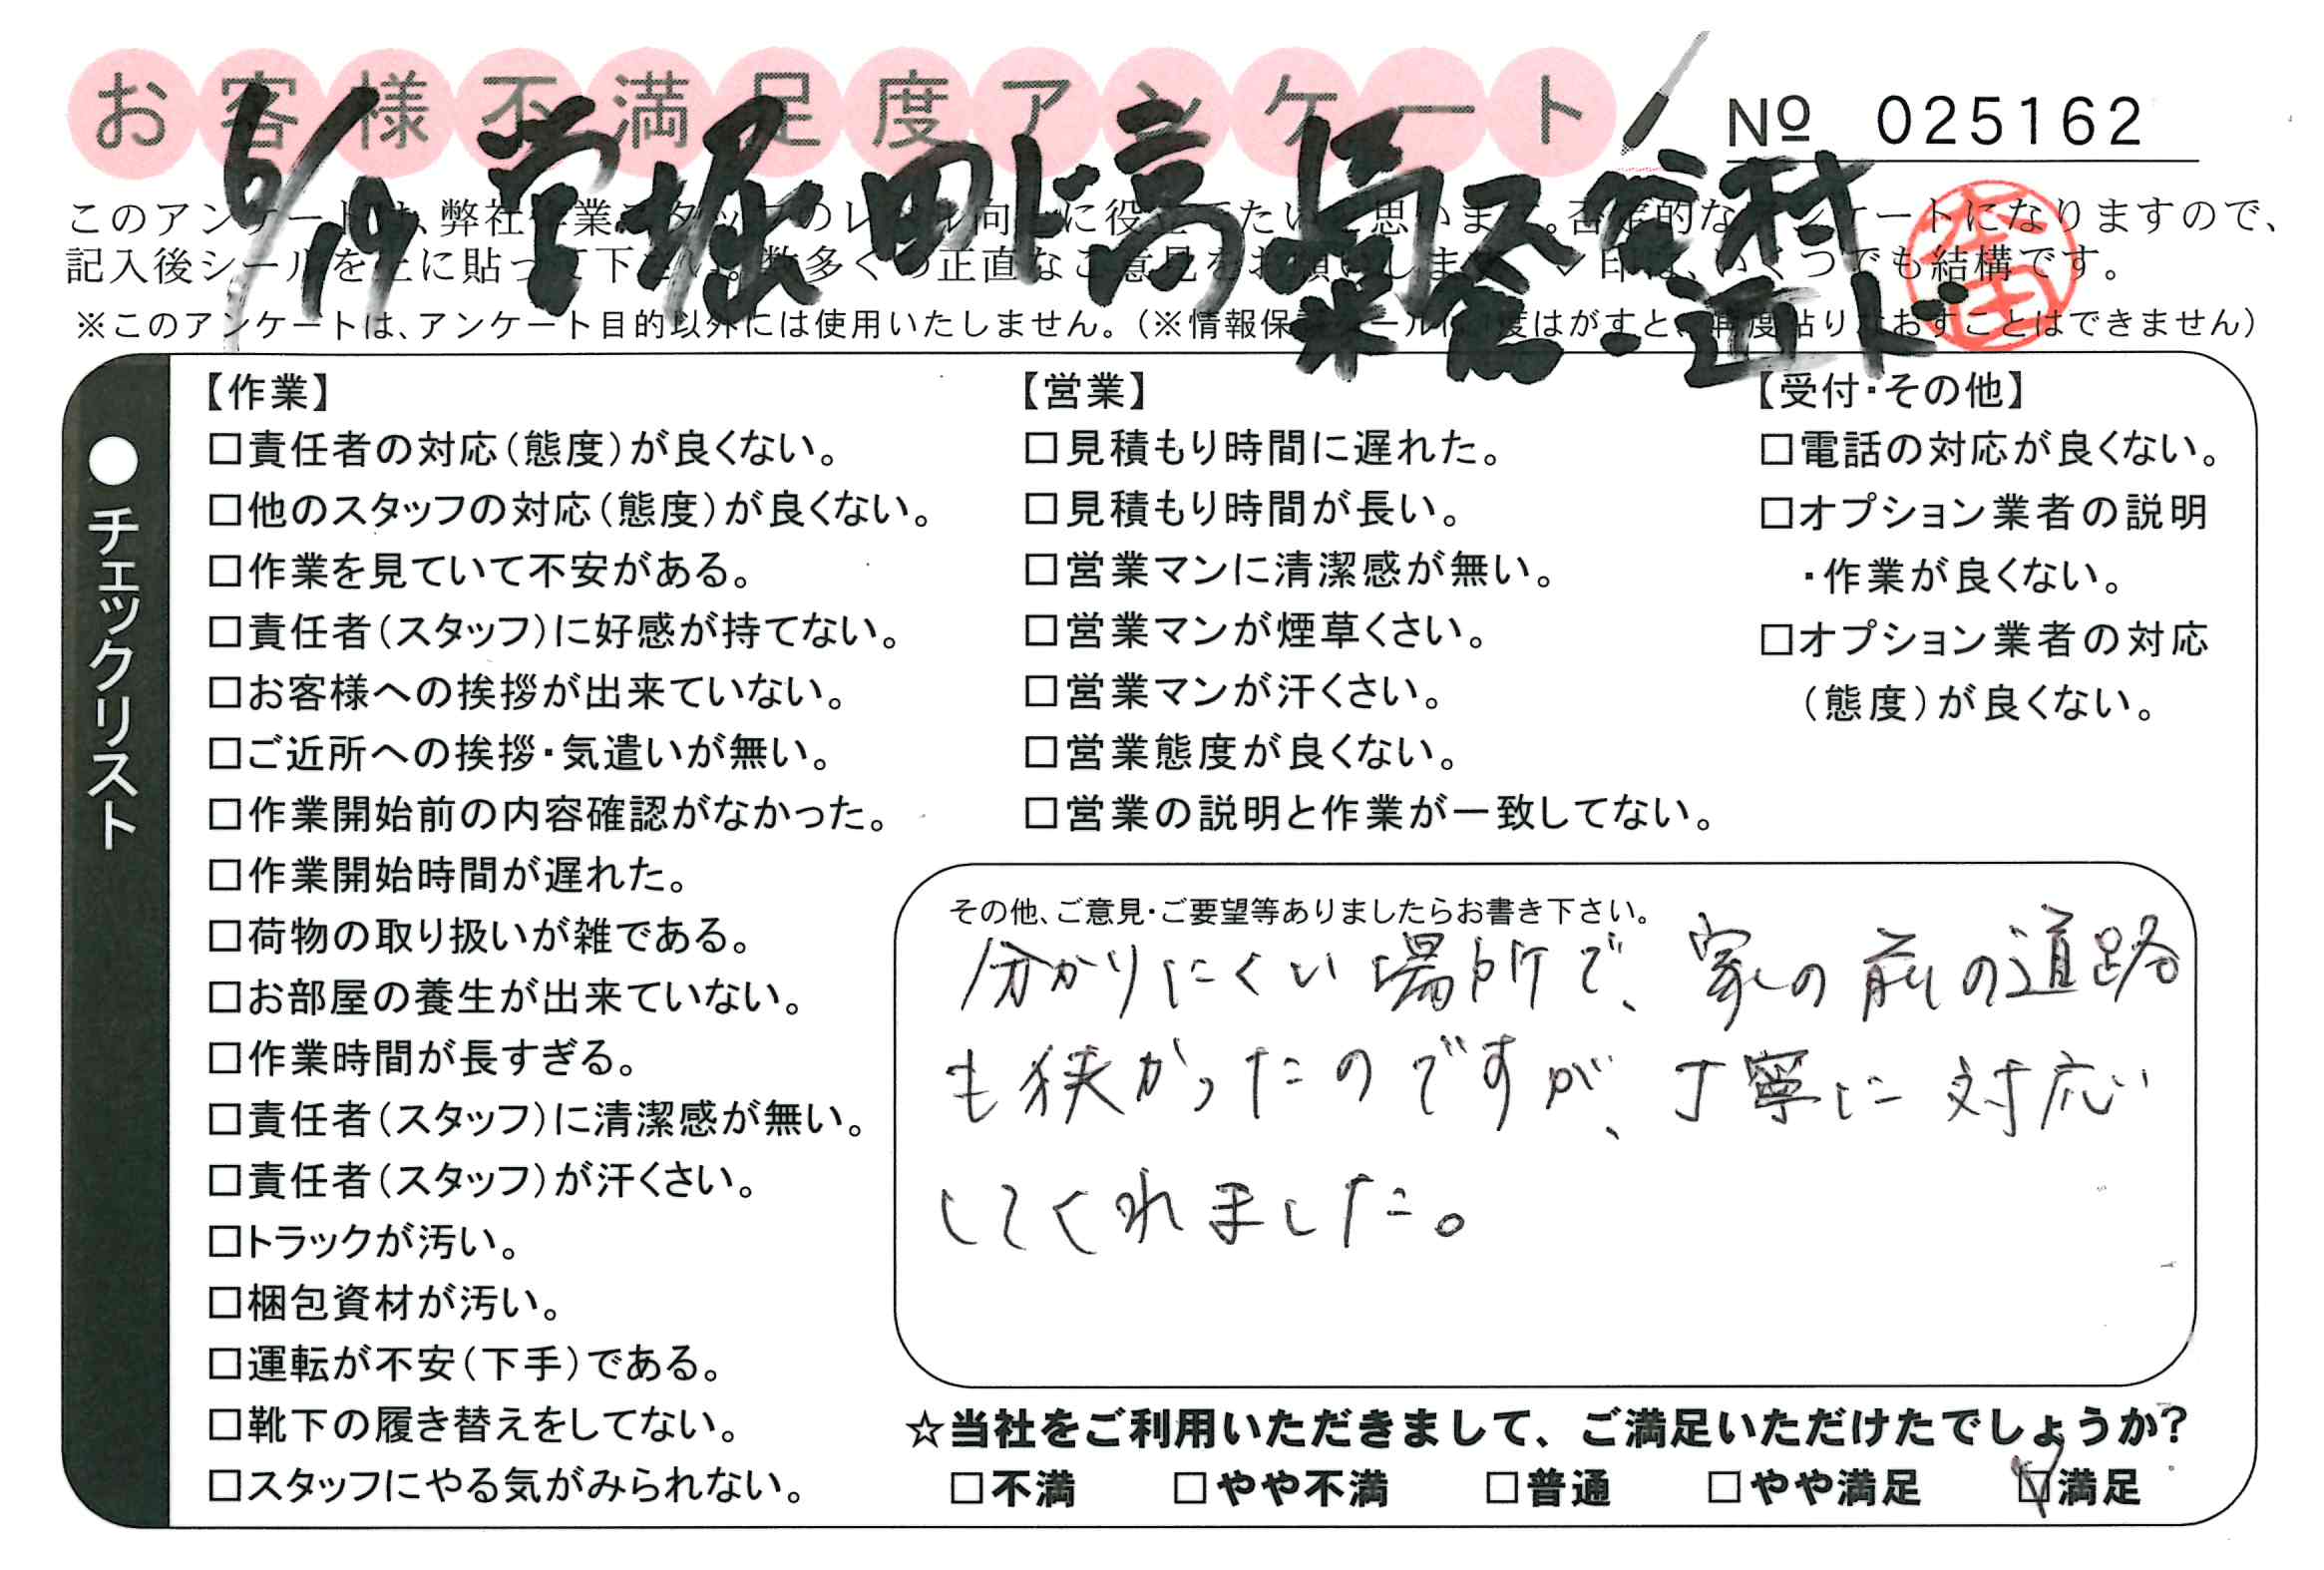 お客様不満足度アンケート
№ 025162
6/19 営堀 田ト高
このアンケートは、弊社作業スタッフのレベル向上に役立てたいと思います。否定的なアンケートになりますので、
記入後シールを上に貼って下さい。数多くの正直なご意見をお願いします。✓印は、いくつでも結構です。
※このアンケートは、アンケート目的以外には使用いたしません。(※情報保護シールは1度はがすと、再度貼りなおすことはできません)
●チェックリスト
【作業】
□責任者の対応(態度)が良くない。
□他のスタッフの対応(態度)が良くない。
□作業を見ていて不安がある。
□責任者(スタッフ)に好感が持てない。
□お客様への挨拶が出来ていない。
□ご近所への挨拶・気遣いが無い。
□作業開始前の内容確認がなかった。
□作業開始時間が遅れた。
□荷物の取り扱いが雑である。
□お部屋の養生が出来ていない。
□作業時間が長すぎる。
□責任者(スタッフ)に清潔感が無い。
□責任者(スタッフ)が汗くさい。
□トラックが汚い。
□梱包資材が汚い。
□運転が不安(下手)である。
□靴下の履き替えをしてない。
□スタッフにやる気がみられない。
【営業】
□見積もり時間に遅れた。
□見積もり時間が長い。
□営業マンに清潔感が無い。
□営業マンが煙草くさい。
□営業マンが汗くさい。
□営業態度が良くない。
□営業の説明と作業が一致してない。
【受付・その他】
□電話の対応が良くない。
□オプション業者の説明
・作業が良くない。
□オプション業者の対応
(態度)が良くない。
その他、ご意見・ご要望等ありましたらお書き下さい。
分かりにくい場所で、家の前の道路
も狭かったのですが、丁寧に対応
してくれました。
☆当社をご利用いただきまして、ご満足いただけたでしょうか?
□不満 □やや不満 □普通 □やや満足 ☑満足